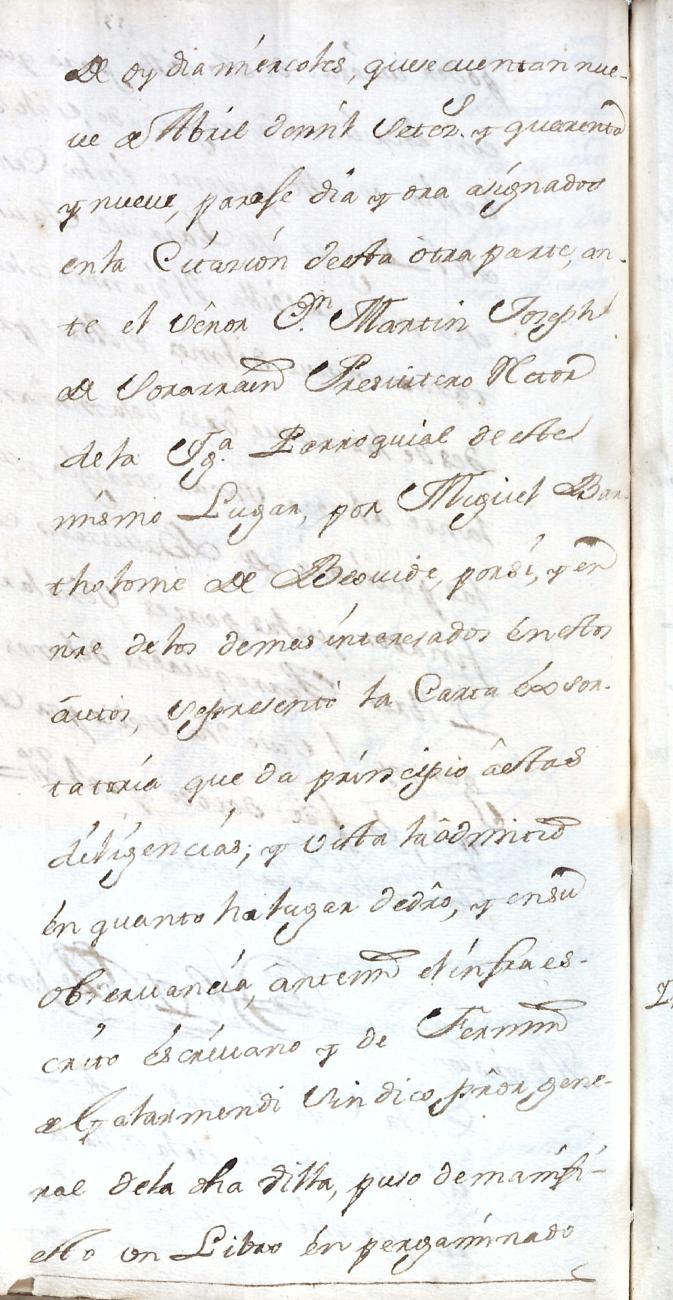 de oy dia miercoles, que se cuentan nue-
ve de Abril de mil Setez.s y quarenta
y nueve, para se dia y ora asignados
en la Citazion de esta otra parte, an-
te el señor D.n Martin Joseph
de Sorarrain Presvitero Retor
de la Ig.a Parroquial de este
mismo Lugar, por Miguel Bar-
tholome de Beovide, por si, y en
nre de los demas interesados en estos
autos, se presentó la Carta exsor-
tatoria que da principio âestas
diligencias; y vista la admitio
en quanto ha lugar dedro, y en su
observancia, ante mi el infraes-
crito escrivano y de Fermin
de Galarmendi Sindico prōr gene-
ral dela dha villa, puso demanifi-
esto un Libro en pergaminado